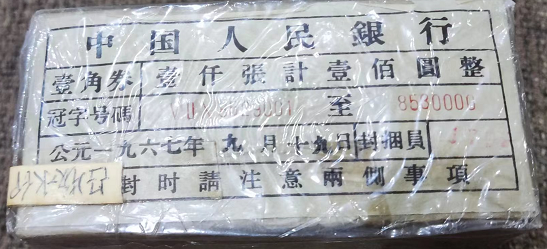 中国人民銀行
壹角券 壹仟張計壹佰圓整
冠字号碼 至 8530000
公元一九六七年 九月十九日 封捆員
封时請注意兩側事項